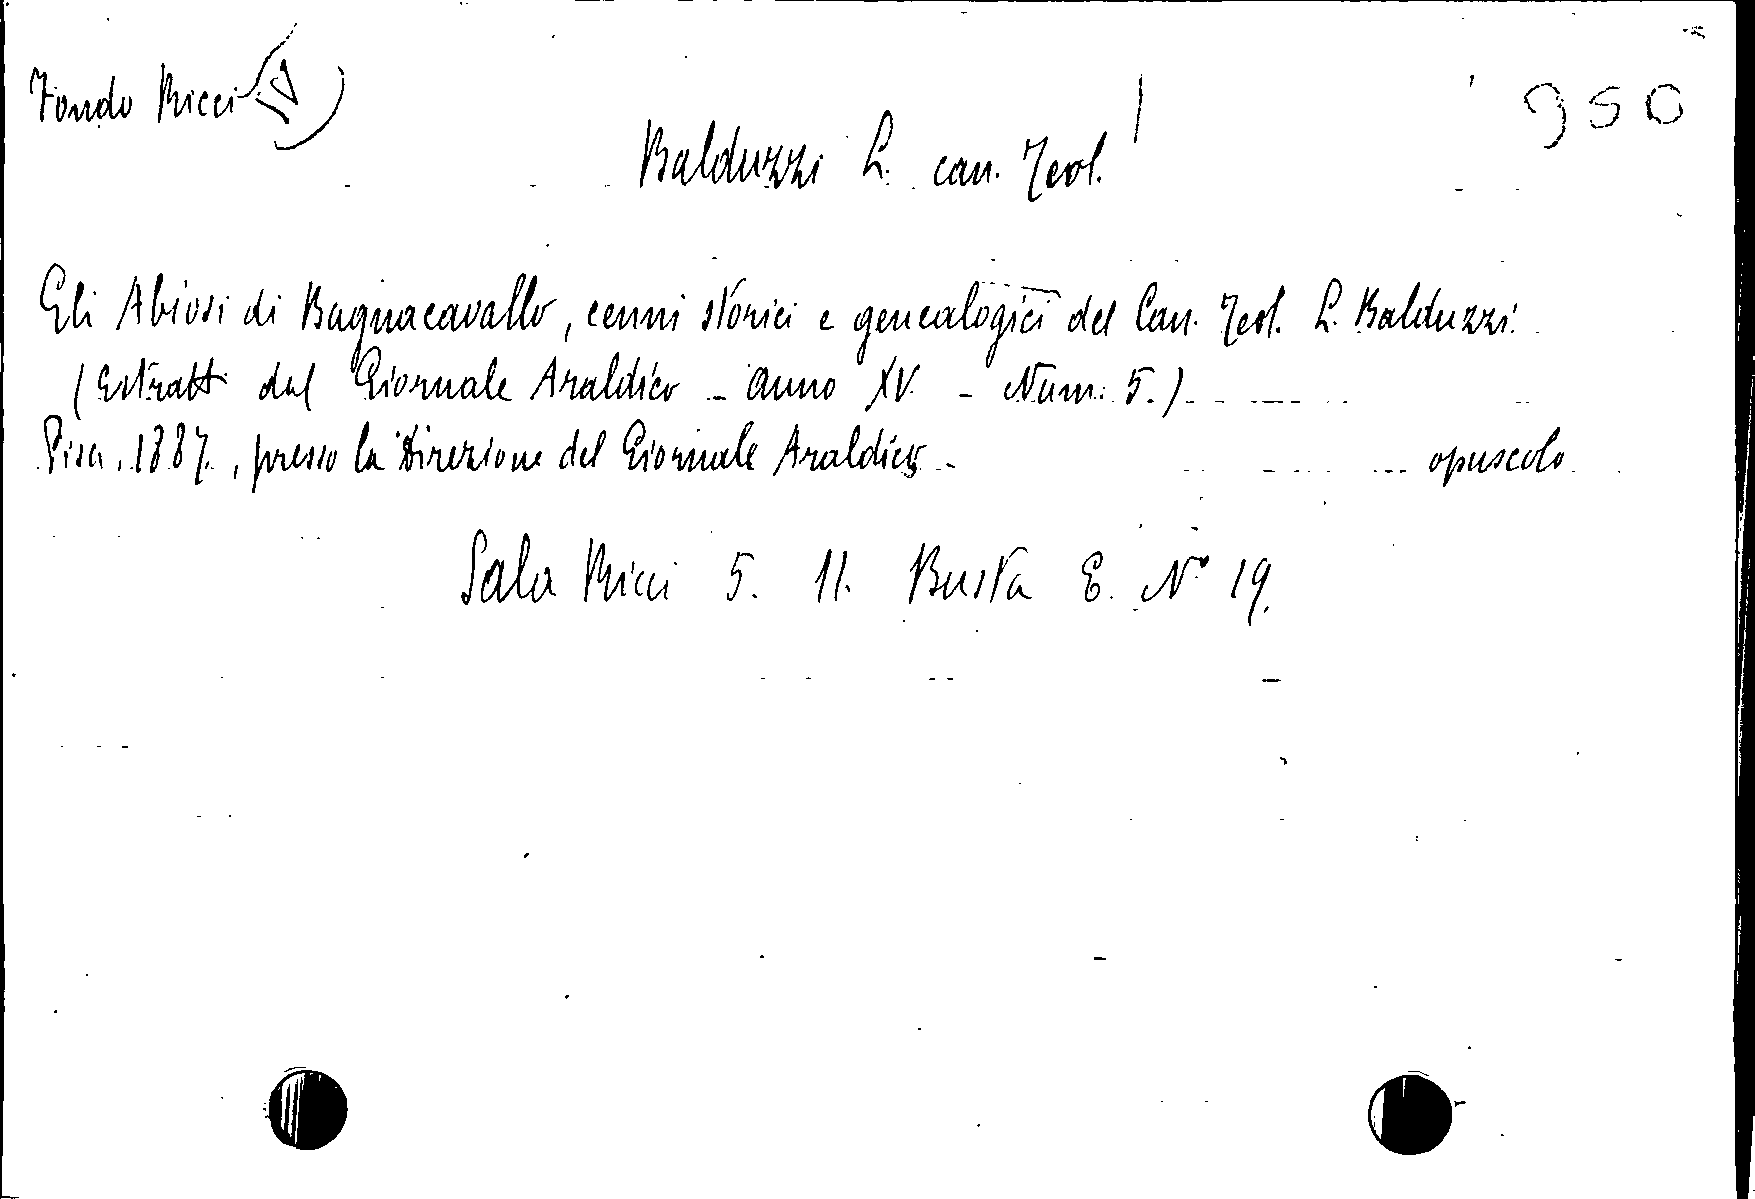 Fondo Ricci
950
Balduzzi L. can. Teol.
Gli Abiosi di Bagnacavallo, cenni storici e genealogici del Can. Teol. L. Balduzzi.
(Estratti dal Giornale Araldico - anno XV. - Num. 5.)
Pisa, 1887., presso la Direzione del Giornale Araldico - opuscolo
Sala Ricci 5. 11. Busta E. N° 19.